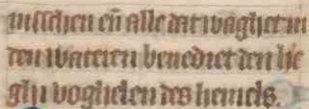 nisschen en̄ alle dat waghet in
den wateren benediet den hie
ghi voghelen des hemels.